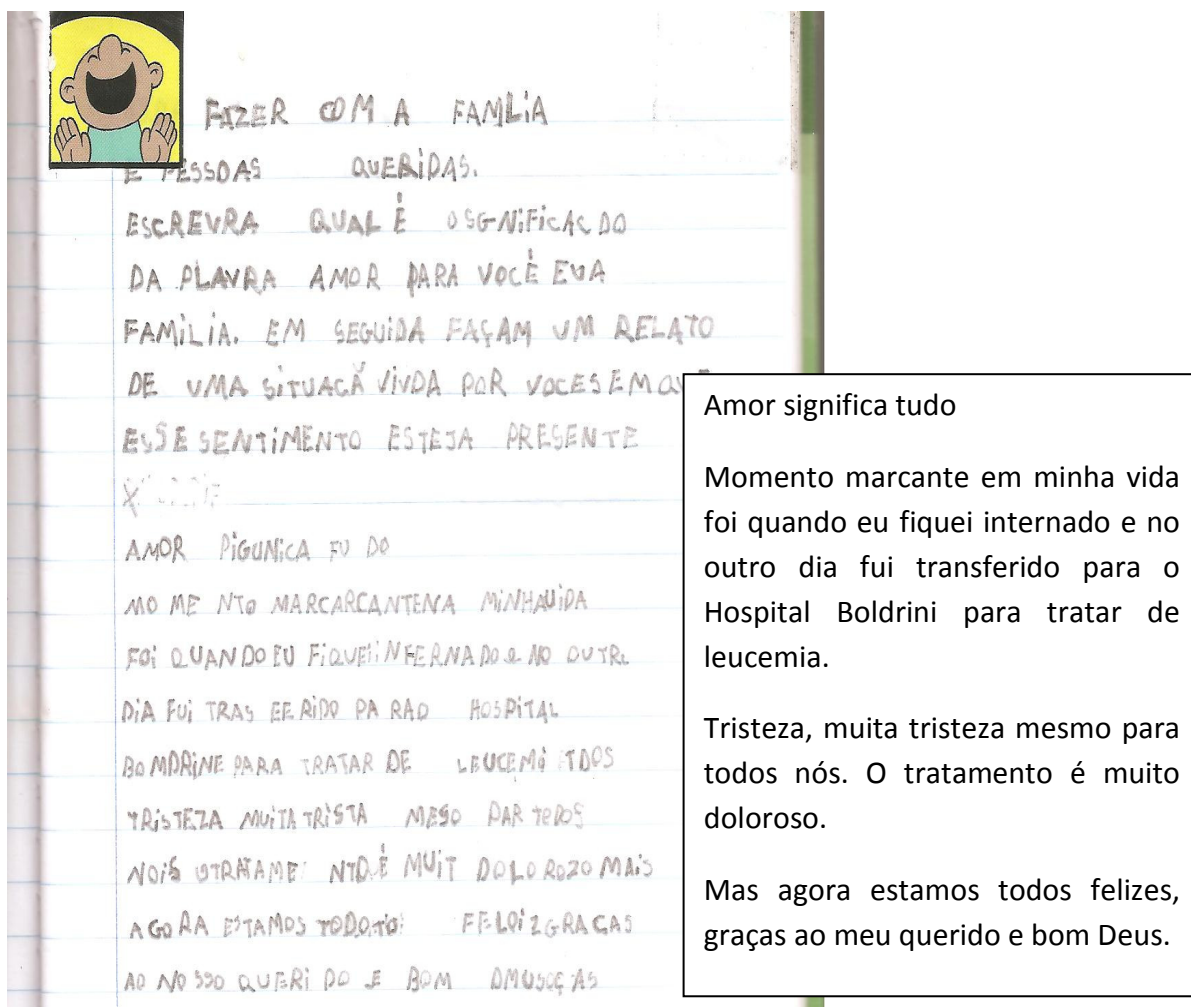 FAZER COM A FAMLiA
E PESSOAS QUERiDAS.
ESCREVRA QUAL É O SGNiFiCAC DO
DA PLAVRA AMOR PARA VOCÊ EUA
FAMiLiA. EM SEGUiDA FAÇAM UM RELATO
DE UMA SiTUACÃ ViVDA POR VOCES EM
ESSE SENTiMENTO ESTEJA PRESENTE
AMOR PiGUNiCA FU DO
MO ME NTO MARCARCANTENA MiNHAUiDA
FOi QUANDO EU FiQUEi iNFERNADO e NO OUTR
DiA FUi TRAS EERiDO PA RAO HOSPiTAL
BOMDRiNE PARA TRATAR DE LEUCEMi
TRiSTEZA MUiTA TRiSTA MESO PAR TODOS
NOiS É MUiT DOLOROZO MAiS
AGORA ESTAMOS GRACAS
AO NOSSO QUERi DO E BOM
Amor significa tudo
Momento marcante em minha vida
foi quando eu fiquei internado e no
outro dia fui transferido para o
Hospital Boldrini para tratar de
leucemia.
Tristeza, muita tristeza mesmo para
todos nós. O tratamento é muito
doloroso.
Mas agora estamos todos felizes,
graças ao meu querido e bom Deus.